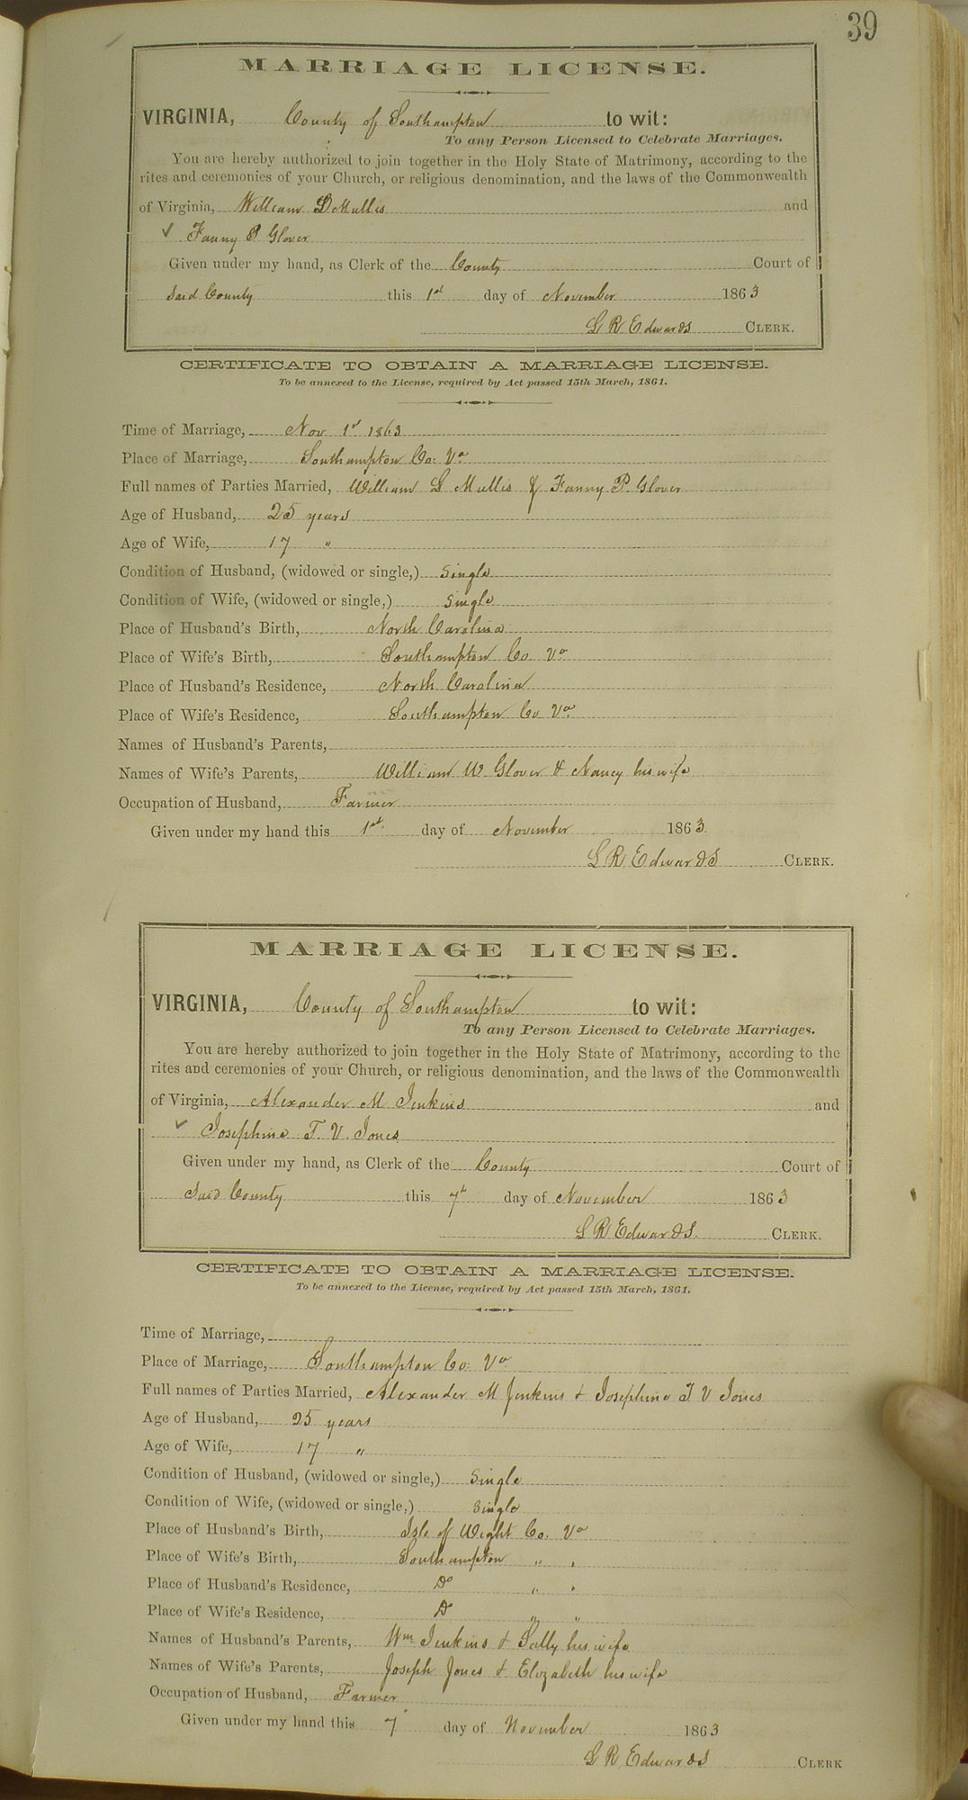 39
MARRIAGE LICENSE.
VIRGINIA, County of Southampton to wit:
To any Person Licensed to Celebrate Marriages.
You are hereby authorized to join together in the Holy State of Matrimony, according to the
rites and ceremonies of your Church, or religious denomination, and the laws of the Commonwealth
of Virginia, William Mullis and
✓ Fanny P Glover
Given under my hand, as Clerk of the County Court of
Said County this 1st day of November 1863
L R Edwards CLERK.
CERTIFICATE TO OBTAIN A MARRIAGE LICENSE.
To be annexed to the License, required by Act passed 15th March, 1861.
Time of Marriage, Nov 1st 1863
Place of Marriage, Southampton Co: Va
Full names of Parties Married, William L Mullis & Fanny P. Glover
Age of Husband, 25 years
Age of Wife, 17 "
Condition of Husband, (widowed or single,) Single
Condition of Wife, (widowed or single,) Single
Place of Husband's Birth, North Carolina
Place of Wife's Birth, Southampton Co Va
Place of Husband's Residence, North Carolina
Place of Wife's Residence, Southampton Co Va
Names of Husband's Parents,
Names of Wife's Parents, William W Glover & Nancy his wife
Occupation of Husband, Farmer
Given under my hand this 1st day of November 1863
L R Edwards CLERK.
MARRIAGE LICENSE.
VIRGINIA, County of Southampton to wit:
To any Person Licensed to Celebrate Marriages.
You are hereby authorized to join together in the Holy State of Matrimony, according to the
rites and ceremonies of your Church, or religious denomination, and the laws of the Commonwealth
of Virginia, Alexander M Jenkins and
✓ Josephine T. V. Jones
Given under my hand, as Clerk of the County Court of
Said County this 7th day of November 1863
L R Edwards CLERK.
CERTIFICATE TO OBTAIN A MARRIAGE LICENSE.
To be annexed to the License, required by Act passed 15th March, 1861.
Time of Marriage,
Place of Marriage, Southampton Co: Va
Full names of Parties Married, Alexander M Jenkins & Josephine T V Jones
Age of Husband, 25 years
Age of Wife, 17 "
Condition of Husband, (widowed or single,) Single
Condition of Wife, (widowed or single,) Single
Place of Husband's Birth, Isle of Wight Co. Va
Place of Wife's Birth, Southampton " "
Place of Husband's Residence, Do " "
Place of Wife's Residence, Do " "
Names of Husband's Parents, Wm Jenkins & Sally his wife
Names of Wife's Parents, Joseph Jones & Elizabeth his wife
Occupation of Husband, Farmer
Given under my hand this 7 day of November 1863
L R Edwards CLERK